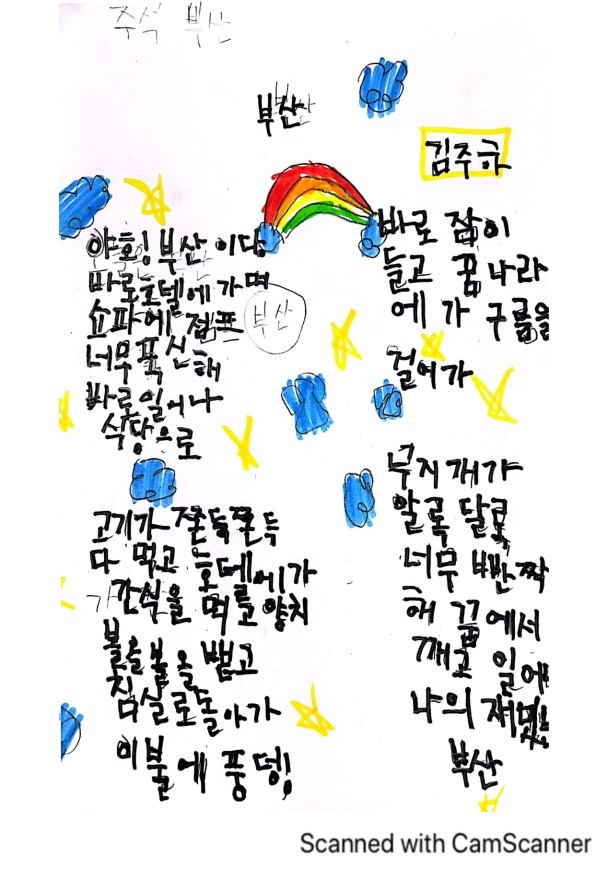 추석 부산
부산
김주하
야호! 부산 이다
바로 호텔에 가며
쇼파에 점프
부산
너무 푹신해
바로 일어나
식당으로
고기가 쫀득쫀득
다 먹고 호텔에가
간식을 먹고 양치
볼을 볼을 뱉고
침실로 돌아가
이불에 풍덩!
바로 잠이
들고 꿈나라
에 가 구름을
걸어가
무지개가
알록 달록
너무 빤짝
해 꿈에서
깨고 일어
나의 재밌는
부산
Scanned with CamScanner